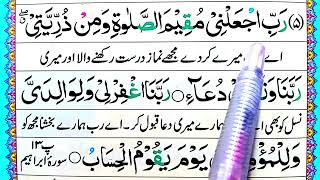 (۵) رَبِّ اجْعَلْنِیْ مُقِیْمَ الصَّلٰوةِ وَمِنْ ذُرِّیَّتِیْ
اے میرے کر دے مجھے نماز درست رکھنے والا اور میری
رَبَّنَا وَ دُعَآءِ ○ رَبَّنَا اغْفِرْلِیْ وَلِوَالِدَیَّ
نسل کو بھی اے ہمارے میری دعا قبول کر۔ اے رب ہمارے بخشا مجھ کو
وَلِلْمُؤْ یَوْمَ یَقُوْمُ الْحِسَابُ ○
پ ۱۳ سورة ابراہیم